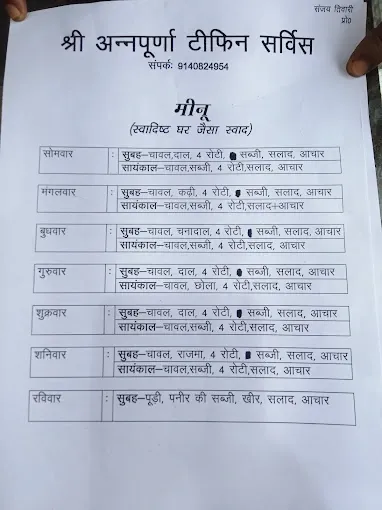 संजय तिवारी
प्रो०
श्री अन्नपूर्णा टीफिन सर्विस
संपर्क: 9140824954
मीनू
(स्वादिष्ट घर जैसा स्वाद)
सोमवार : सुबह–चावल,दाल, 4 रोटी, सब्जी, सलाद, आचार
सायंकाल–चावल,सब्जी, 4 रोटी,सलाद, आचार
मंगलवार : सुबह–चावल, कढ़ी, 4 रोटी, सब्जी, सलाद, आचार
सायंकाल–चावल,सब्जी, 4 रोटी,सलाद+आचार
बुधवार : सुबह–चावल, चनादाल, 4 रोटी, सब्जी, सलाद, आचार
सायंकाल–चावल,सब्जी, 4 रोटी,सलाद, आचार
गुरुवार : सुबह–चावल, दाल, 4 रोटी, सब्जी, सलाद, आचार
सायंकाल–चावल, छोला, 4 रोटी,सलाद, आचार
शुक्रवार : सुबह–चावल, दाल, 4 रोटी, सब्जी, सलाद, आचार
सायंकाल–चावल,सब्जी, 4 रोटी,सलाद, आचार
शनिवार : सुबह–चावल, राजमा, 4 रोटी, सब्जी, सलाद, आचार
सायंकाल–चावल,सब्जी, 4 रोटी,सलाद, आचार
रविवार : सुबह–पूड़ी, पनीर की सब्जी, खीर, सलाद, आचार